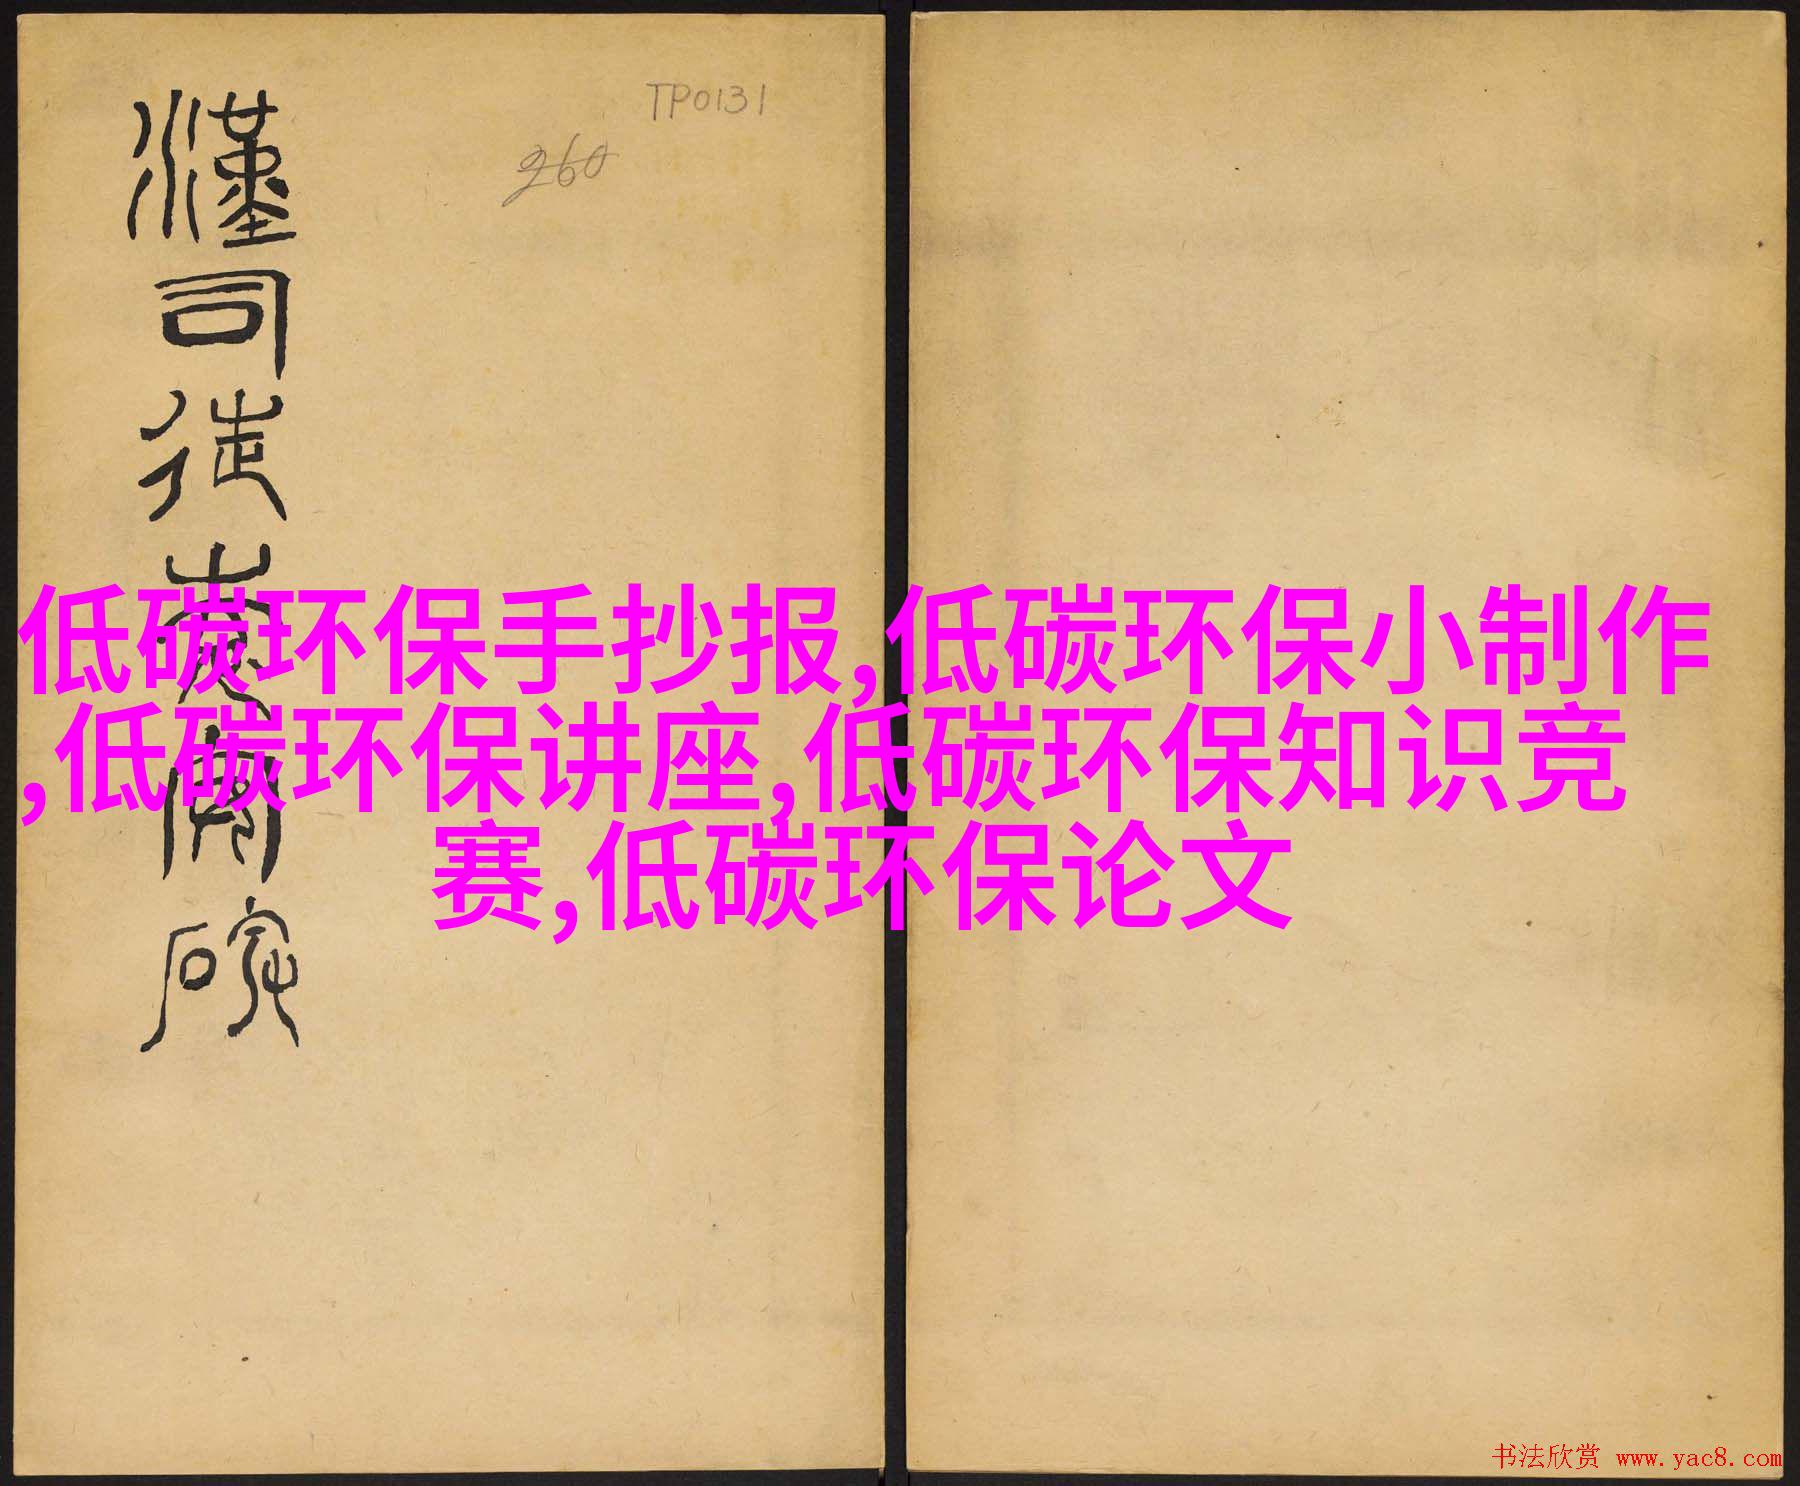 TP0131
260
漢司徒袁安碑
低碳环保手抄报,低碳环保小制作
,低碳环保讲座,低碳环保知识竞
赛,低碳环保论文
书法欣赏 www.yac8.com